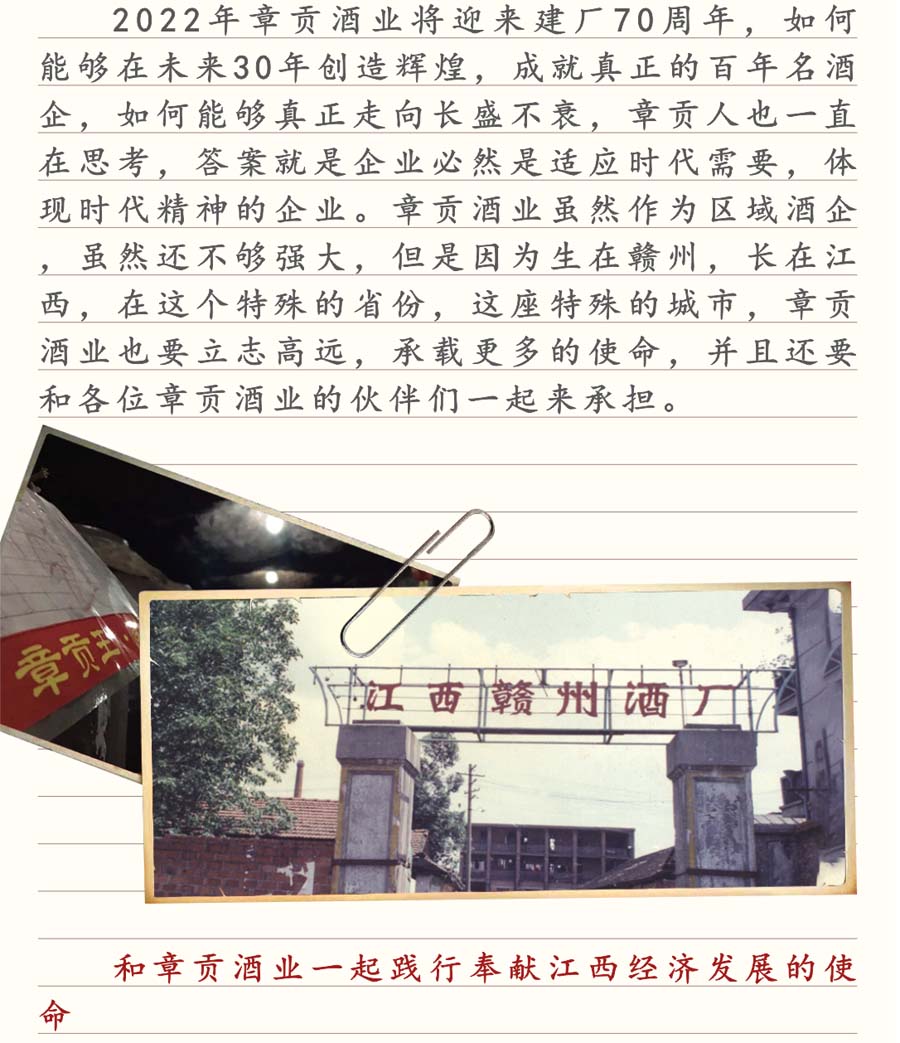 2022年章贡酒业将迎来建厂70周年，如何
能够在未来30年创造辉煌，成就真正的百年名酒
企，如何能够真正走向长盛不衰，章贡人也一直
在思考，答案就是企业必然是适应时代需要，体
现时代精神的企业。章贡酒业虽然作为区域酒企
，虽然还不够强大，但是因为生在赣州，长在江
西，在这个特殊的省份，这座特殊的城市，章贡
酒业也要立志高远，承载更多的使命，并且还要
和各位章贡酒业的伙伴们一起来承担。
章贡王
江西赣州酒厂
和章贡酒业一起践行奉献江西经济发展的使
命